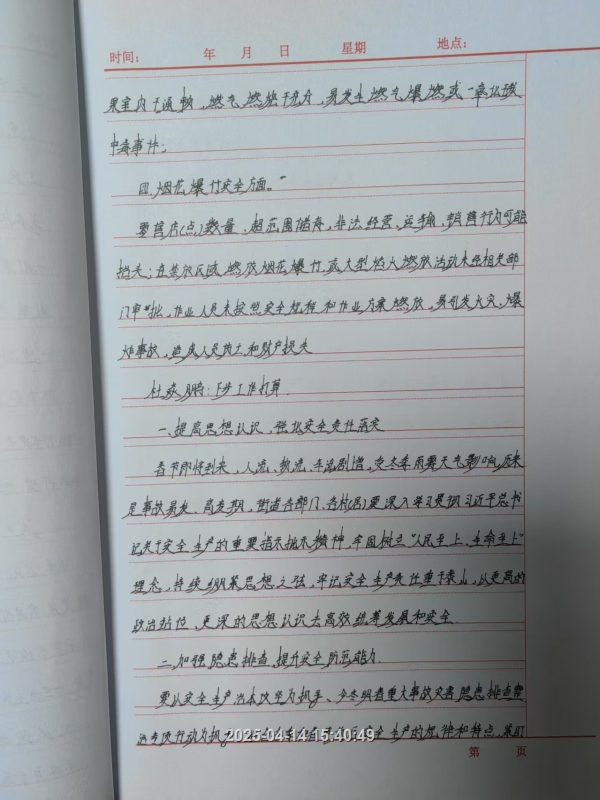 时间： 年 月 日 星期 地点：
果室内不通畅，燃气燃烧不充分，易发生燃气爆燃或一氧化碳
中毒事件；
四.烟花爆竹安全方面。
零售店(点)数量、超范围储存，非法经营、运输、销售行为可能
抬头；在禁放区域燃放烟花爆竹或大型焰火燃放活动未经相关部
门审批，作业人员未按照安全规程和作业方案燃放，易引发火灾、爆
炸事故，造成人员伤亡和财产损失
杜 鹏：下步工作打算
一、提高思想认识，强化安全责任落实
春节即将到来，人流、物流、车流剧增，受冬季雨雾天气影响，历来
是事故易发、高发期，街道各部门、各村(居)要深入学习贯彻习近平总书
记关于安全生产的重要指示批示精神，牢固树立"人民至上、生命至上"
理念，持续绷紧思想之弦，牢记安全生产责任重于泰山，以更高的
政治站位、更深的思想认识去高效统筹发展和安全.
二、加强隐患排查，提升安全防范能力
要以安全生产治本攻坚为抓手、今冬明春重大事故灾害隐患排查整
治专项行动为抓 安全生产的规律和特点，紧盯
2025-04-14 15:40:49
第 页